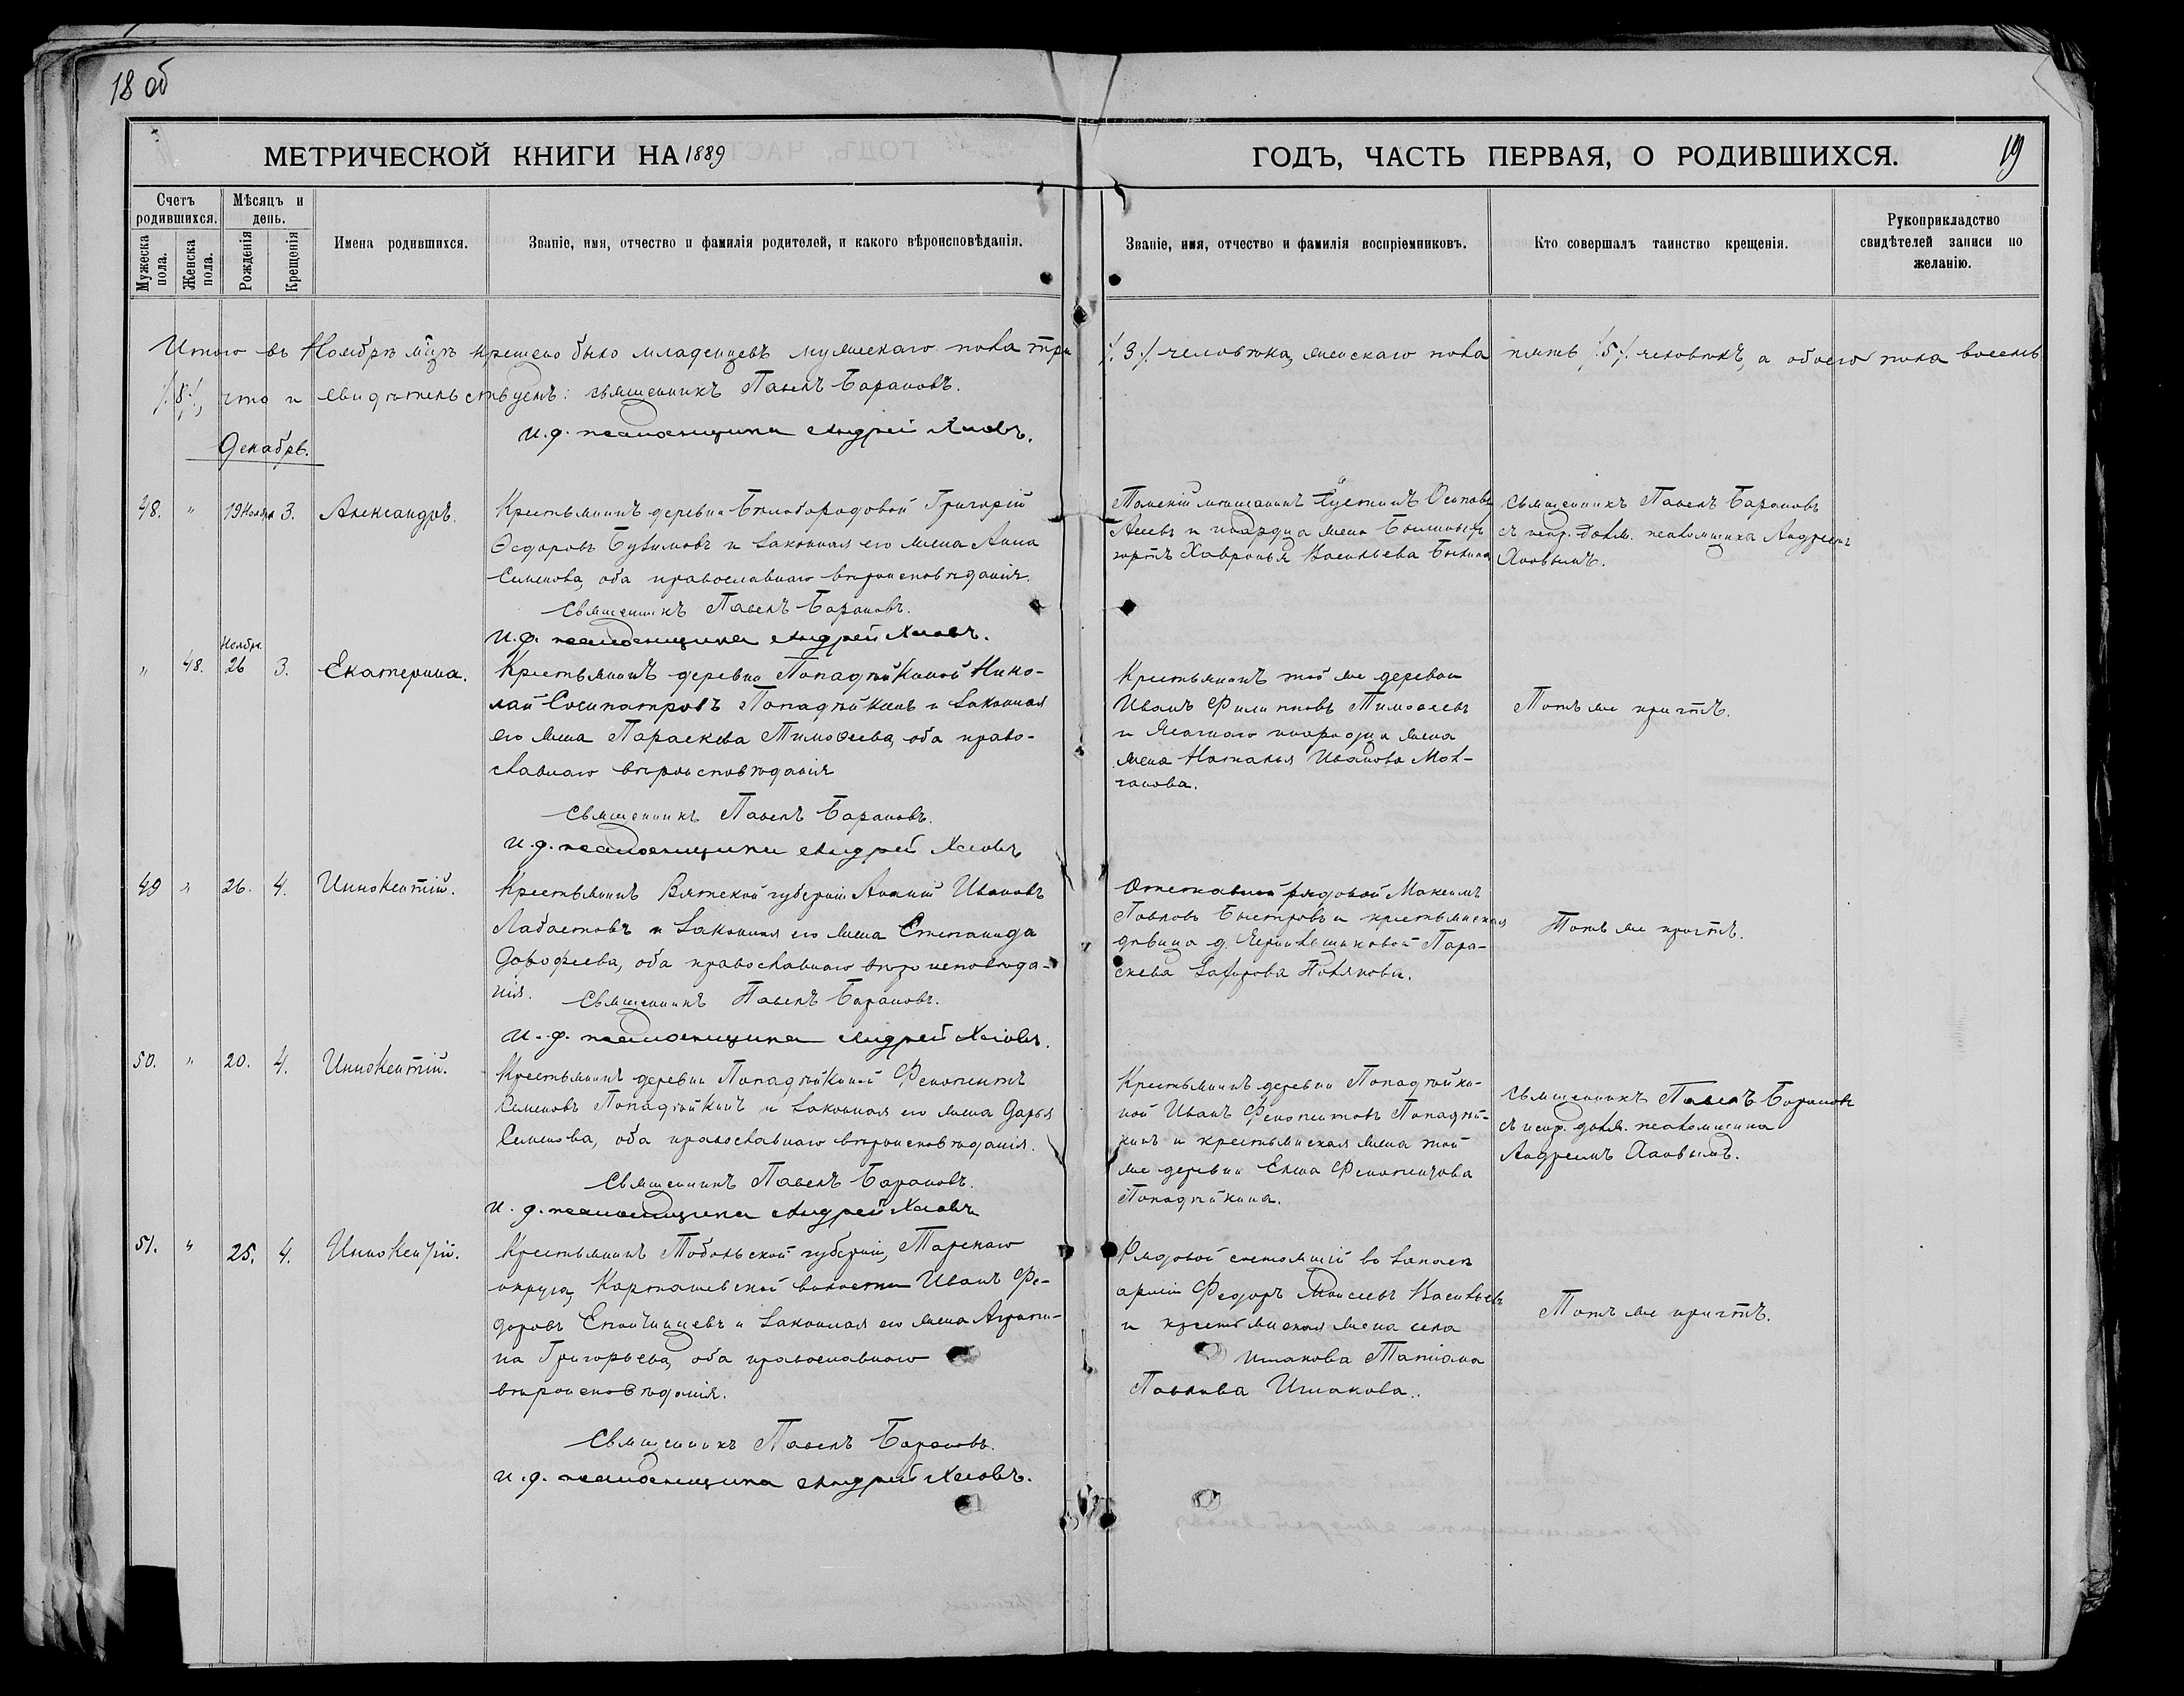 18 об
МЕТРИЧЕСКОЙ КНИГИ НА 1889
ГОДЪ, ЧАСТЬ ПЕРВАЯ, О РОДИВШИХСЯ.
19
Счетъ родившихся.
Мужеска пола.
Женска пола.
Мѣсяцъ и день.
Рожденія
Крещенія
Имена родившихся.
Званіе, имя, отчество и фамилія родителей, и какого вѣроисповѣданія.
Званіе, имя, отчество и фамилія воспріемниковъ.
Кто совершалъ таинство крещенія.
Рукоприкладство
свидѣтелей записи по
желанію.
Итого въ Ноябрѣ мцѣ крещено было младенцевъ мужескаго пола три /.3./ человѣка, женскаго пола пять /.5./ человѣкъ, а обоего пола восемь
/.8./, что и свидѣтельствуемъ: священникъ Павелъ Барановъ.
И.д. псаломщика Андрей Хаовъ.
Декабрь.
48. " 19 Ноября 3. Александръ.
Крестьянинъ деревни Бѣлобородовой Григорій
Ѳедоровъ и законная его жена Анна
Семенова, оба православнаго вѣроисповѣданія.
Священникъ Павелъ Барановъ.
И.д. псаломщика Андрей Хаовъ.
Томскій мѣщанинъ Іустинъ Осиповъ
и инородца жена
юртъ Хавронья Васильева
Священникъ Павелъ Барановъ
съ испр. долж. псаломщика Андреемъ
Хаовымъ.
" 48. Ноября 26 3. Екатерина.
Крестьянинъ деревни Попадѣйкиной Нико-
лай Сосипатровъ Попадѣйкинъ и законная
его жена Параскева Тимоѳеева, оба право-
славнаго вѣроисповѣданія
Священникъ Павелъ Барановъ.
И.д. псаломщика Андрей Хаовъ
Крестьянинъ той же деревни
Иванъ Филипповъ Тимоѳеевъ
и инородца жена
жена Наталья Иванова Мол-
чанова.
Тотъ же причтъ.
49 " 26. 4. Иннокентій.
Крестьянинъ Вятской губерніи Ананій Ивановъ
Лабастовъ и законная его жена Степанида
Дорофеева, оба православнаго вѣроисповѣда-
нія. Священникъ Павелъ Барановъ.
И.д. псаломщика Андрей Хаовъ.
Отставной рядовой Максимъ
Павловъ Быстровъ и крестьянская
дѣвица д. Пара-
скева Полякова.
Тотъ же причтъ.
50. " 20. 4. Иннокентій.
Крестьянинъ деревни Попадѣйкиной Ферапонтъ
Семеновъ Попадѣйкинъ и законная его жена Дарья
Семенова, оба православнаго вѣроисповѣданія.
Священникъ Павелъ Барановъ.
И.д. псаломщика Андрей Хаовъ
Крестьянинъ деревни Попадѣйки-
ной Иванъ Ферапонтовъ Попадѣй-
кинъ и крестьянская жена той
же деревни Елена Ферапонтова
Попадѣйкина.
Священникъ Павелъ Барановъ
съ испр. долж. псаломщика
Андреемъ Хаовымъ.
51. " 25. 4. Иннокентій.
Крестьянинъ Тобольской губерніи, Тарскаго
округа, Карташевской волости Иванъ Фе-
доровъ и законная его жена Агрипи-
на Григорьева, оба православнаго
вѣроисповѣданія.
Священникъ Павелъ Барановъ.
И.д. псаломщика Андрей Хаовъ.
Рядовой состоящій въ запасѣ
арміи Федоръ Моисеевъ Васильевъ
и крестьянская жена села
Ишакова Татіана
Павлова Ишакова.
Тотъ же причтъ.